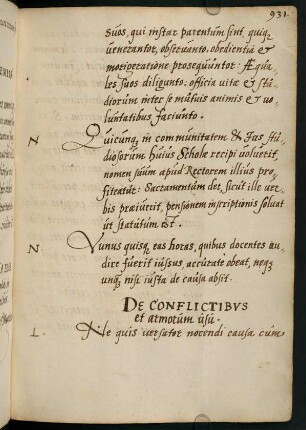 931.
suos, qui instar parentum sint, quiq;
venerantor, obseruanto, obedientia &
morigeratione prosequuntor: Æqua
les suos diligunto: officia vitæ & stu
diorum inter se mutuis animis & uo
luntatibus faciunto.
N Quicunq; in communitatem & Jus stu
diosorum huius Scholæ recipi uoluerit,
nomen suum apud Rectorem illius pro
fiteatur: Sacramentum det, sicut ille uer
bis præiuerit, pensionem inscriptionis soluat
ut statutum est.
N Vnus quisq; eas horas, quibus docentes au
dire fuerit iussus, accurate obeat, neq;
unq; nisi iusta de causa absit.
DE CONFLICTIBVS
et armorum usu.
L. Ne quis uersator nocendi causa cum